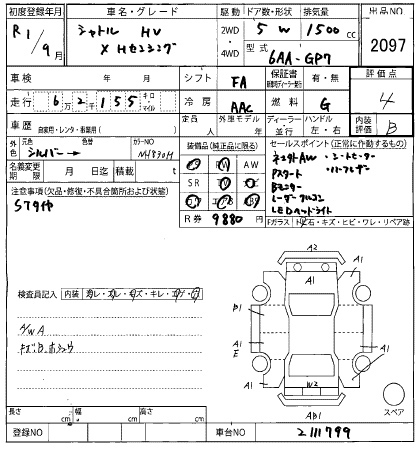 初度登録年月 車名・グレード 駆動 ドア数・形状 排気量 出品NO
R1/9月 シャトル HV X Hセンシング 2WD ・ 4WD 5 W 1500 cc 2097
型式 6AA-GP7
車検 年 月 シフト FA 保証書 有・無 評価点
走行 6万2千155 キロ・マイル 冷房 AAC 燃料 G 4
車歴 自家用・レンタ・事業用( ) 定員 人 外車モデル 年 ディーラー・並行 ハンドル 左・右 内装 B
外色 元色 シルバー 色替 カラーNO NH830M 装備品(純正品に限る) セールスポイント(正常に作動するもの)
名義変更期限 月 日迄 積載 t AW SR
ネェクトAW ・シートヒーター
Pスタート ・バーフレザー
Bモニター
レーダークルコン
LEDヘッドライト
注意事項(欠品・修復・不具合箇所および状態)
R券 9880 円
Fガラス・トビ石・キズ・ヒビ・ワレ・リペア跡
検査員記入 内装
A/W A
A2
A1
A1
B1
A1
A1
E
A1
W2
A1
AB1
スペア
長さ cm 幅 cm 高さ cm
登録NO 車台NO 2111799